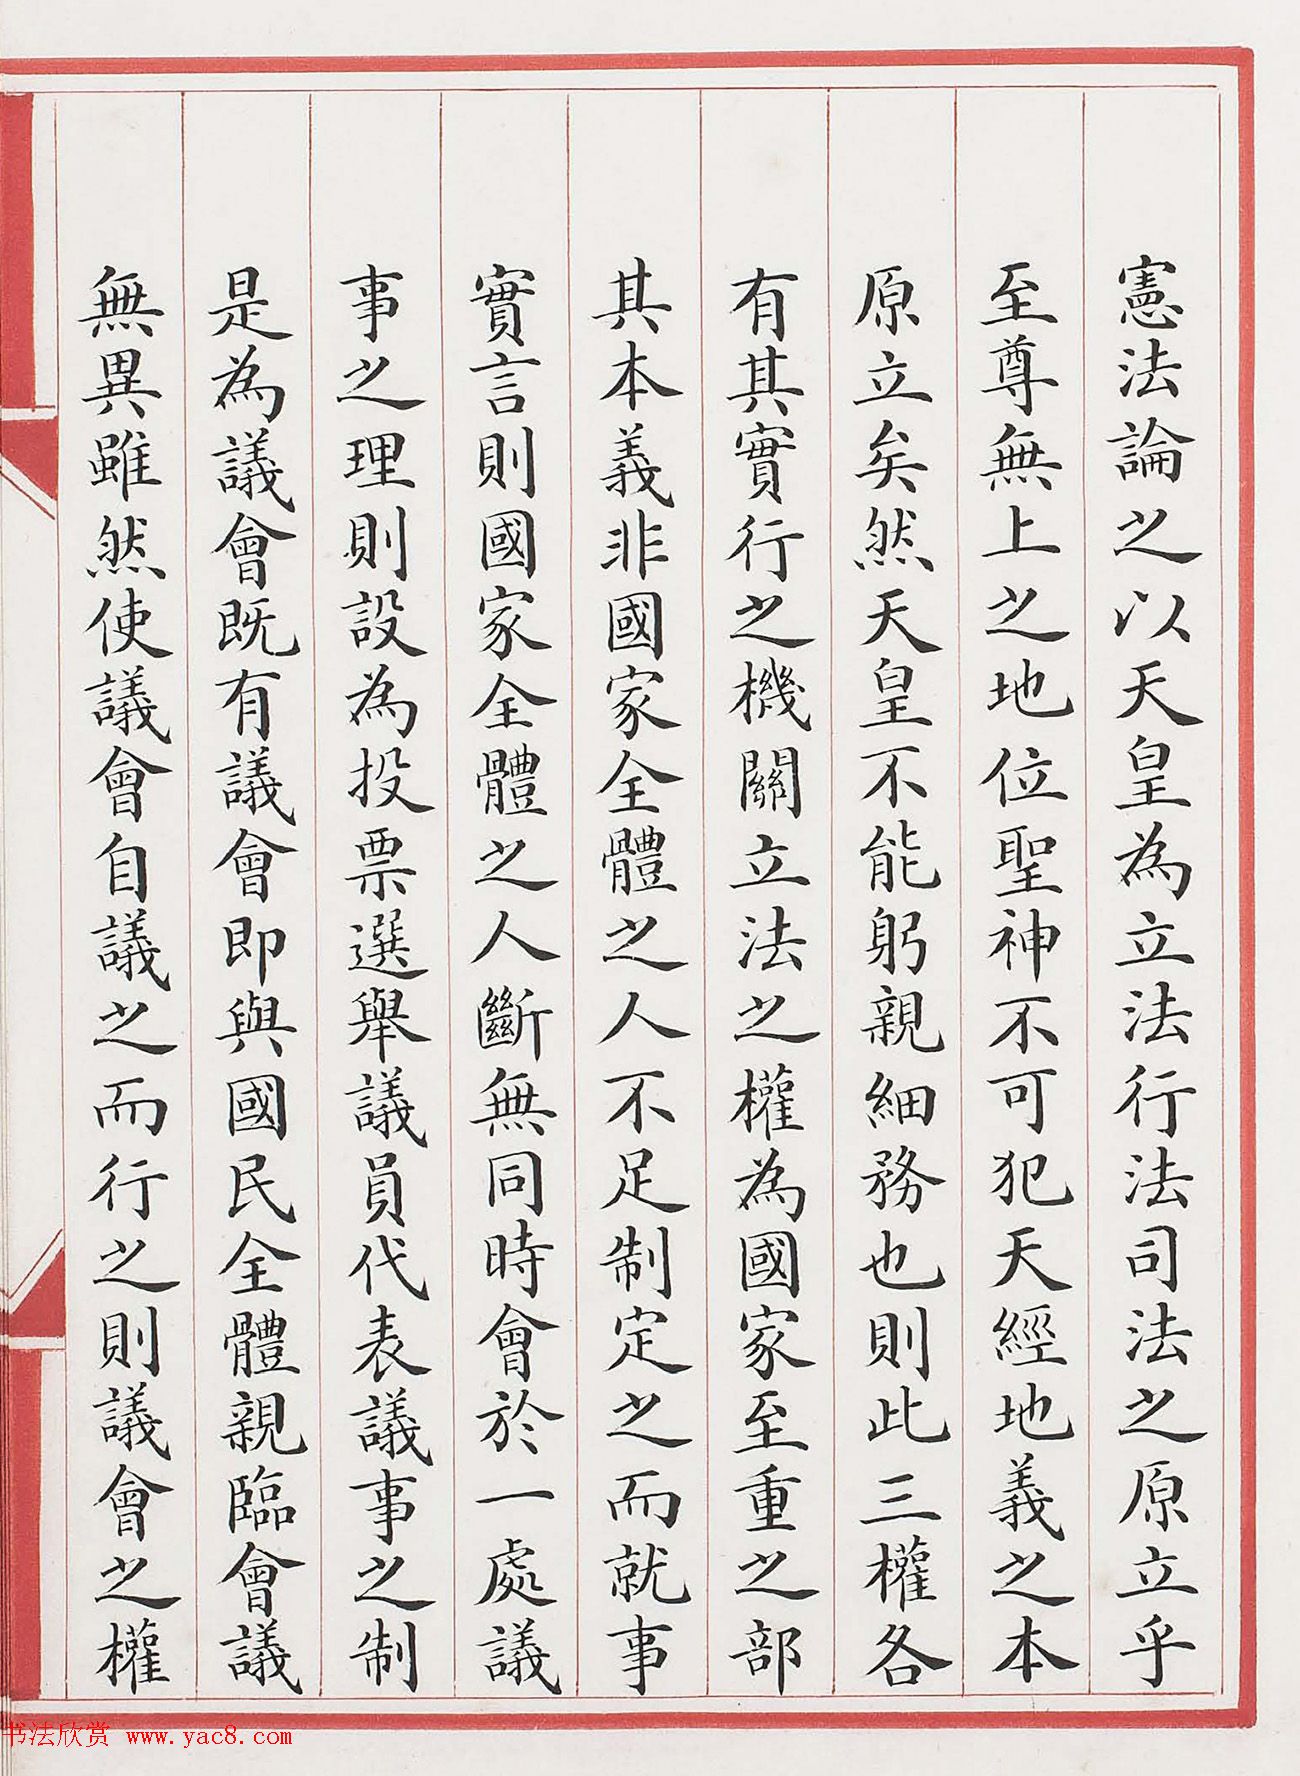 憲法論之以天皇為立法行法司法之原立乎
至尊無上之地位聖神不可犯天經地義之本
原立矣然天皇不能躬親細務也則此三權各
有其實行之機關立法之權為國家至重之部
其本義非國家全體之人不足制定之而就事
實言則國家全體之人斷無同時會於一處議
事之理則設為投票選舉議員代表議事之制
是為議會既有議會即與國民全體親臨會議
無異雖然使議會自議之而行之則議會之權
书法欣赏 www.yac8.com